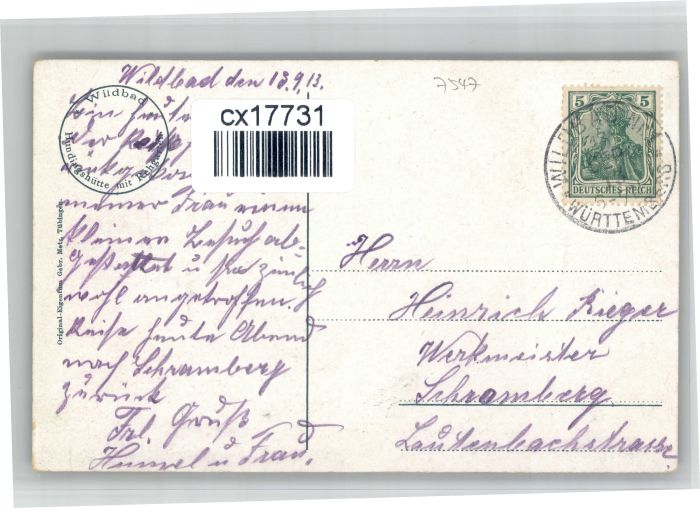 Wildbad den 13.9.13.
7547
5 5
DEUTSCHES REICH
WÜRTTEMBERG
Wildbad
Hundingshütte mit Rehgruppe
cx17731
meiner Frau einen
kleinen Besuch ab-
gestattet u sie
wohl angetroffen.
Reise heute Abend
nach Schramberg
zurück
Frl. Gruß
Hummel u Frau.
Original-Eigentum Gebr. Metz, Tübingen.
Herrn
Heinrich Rieger
Werkmeister
Schramberg
Lautenbachstrasse